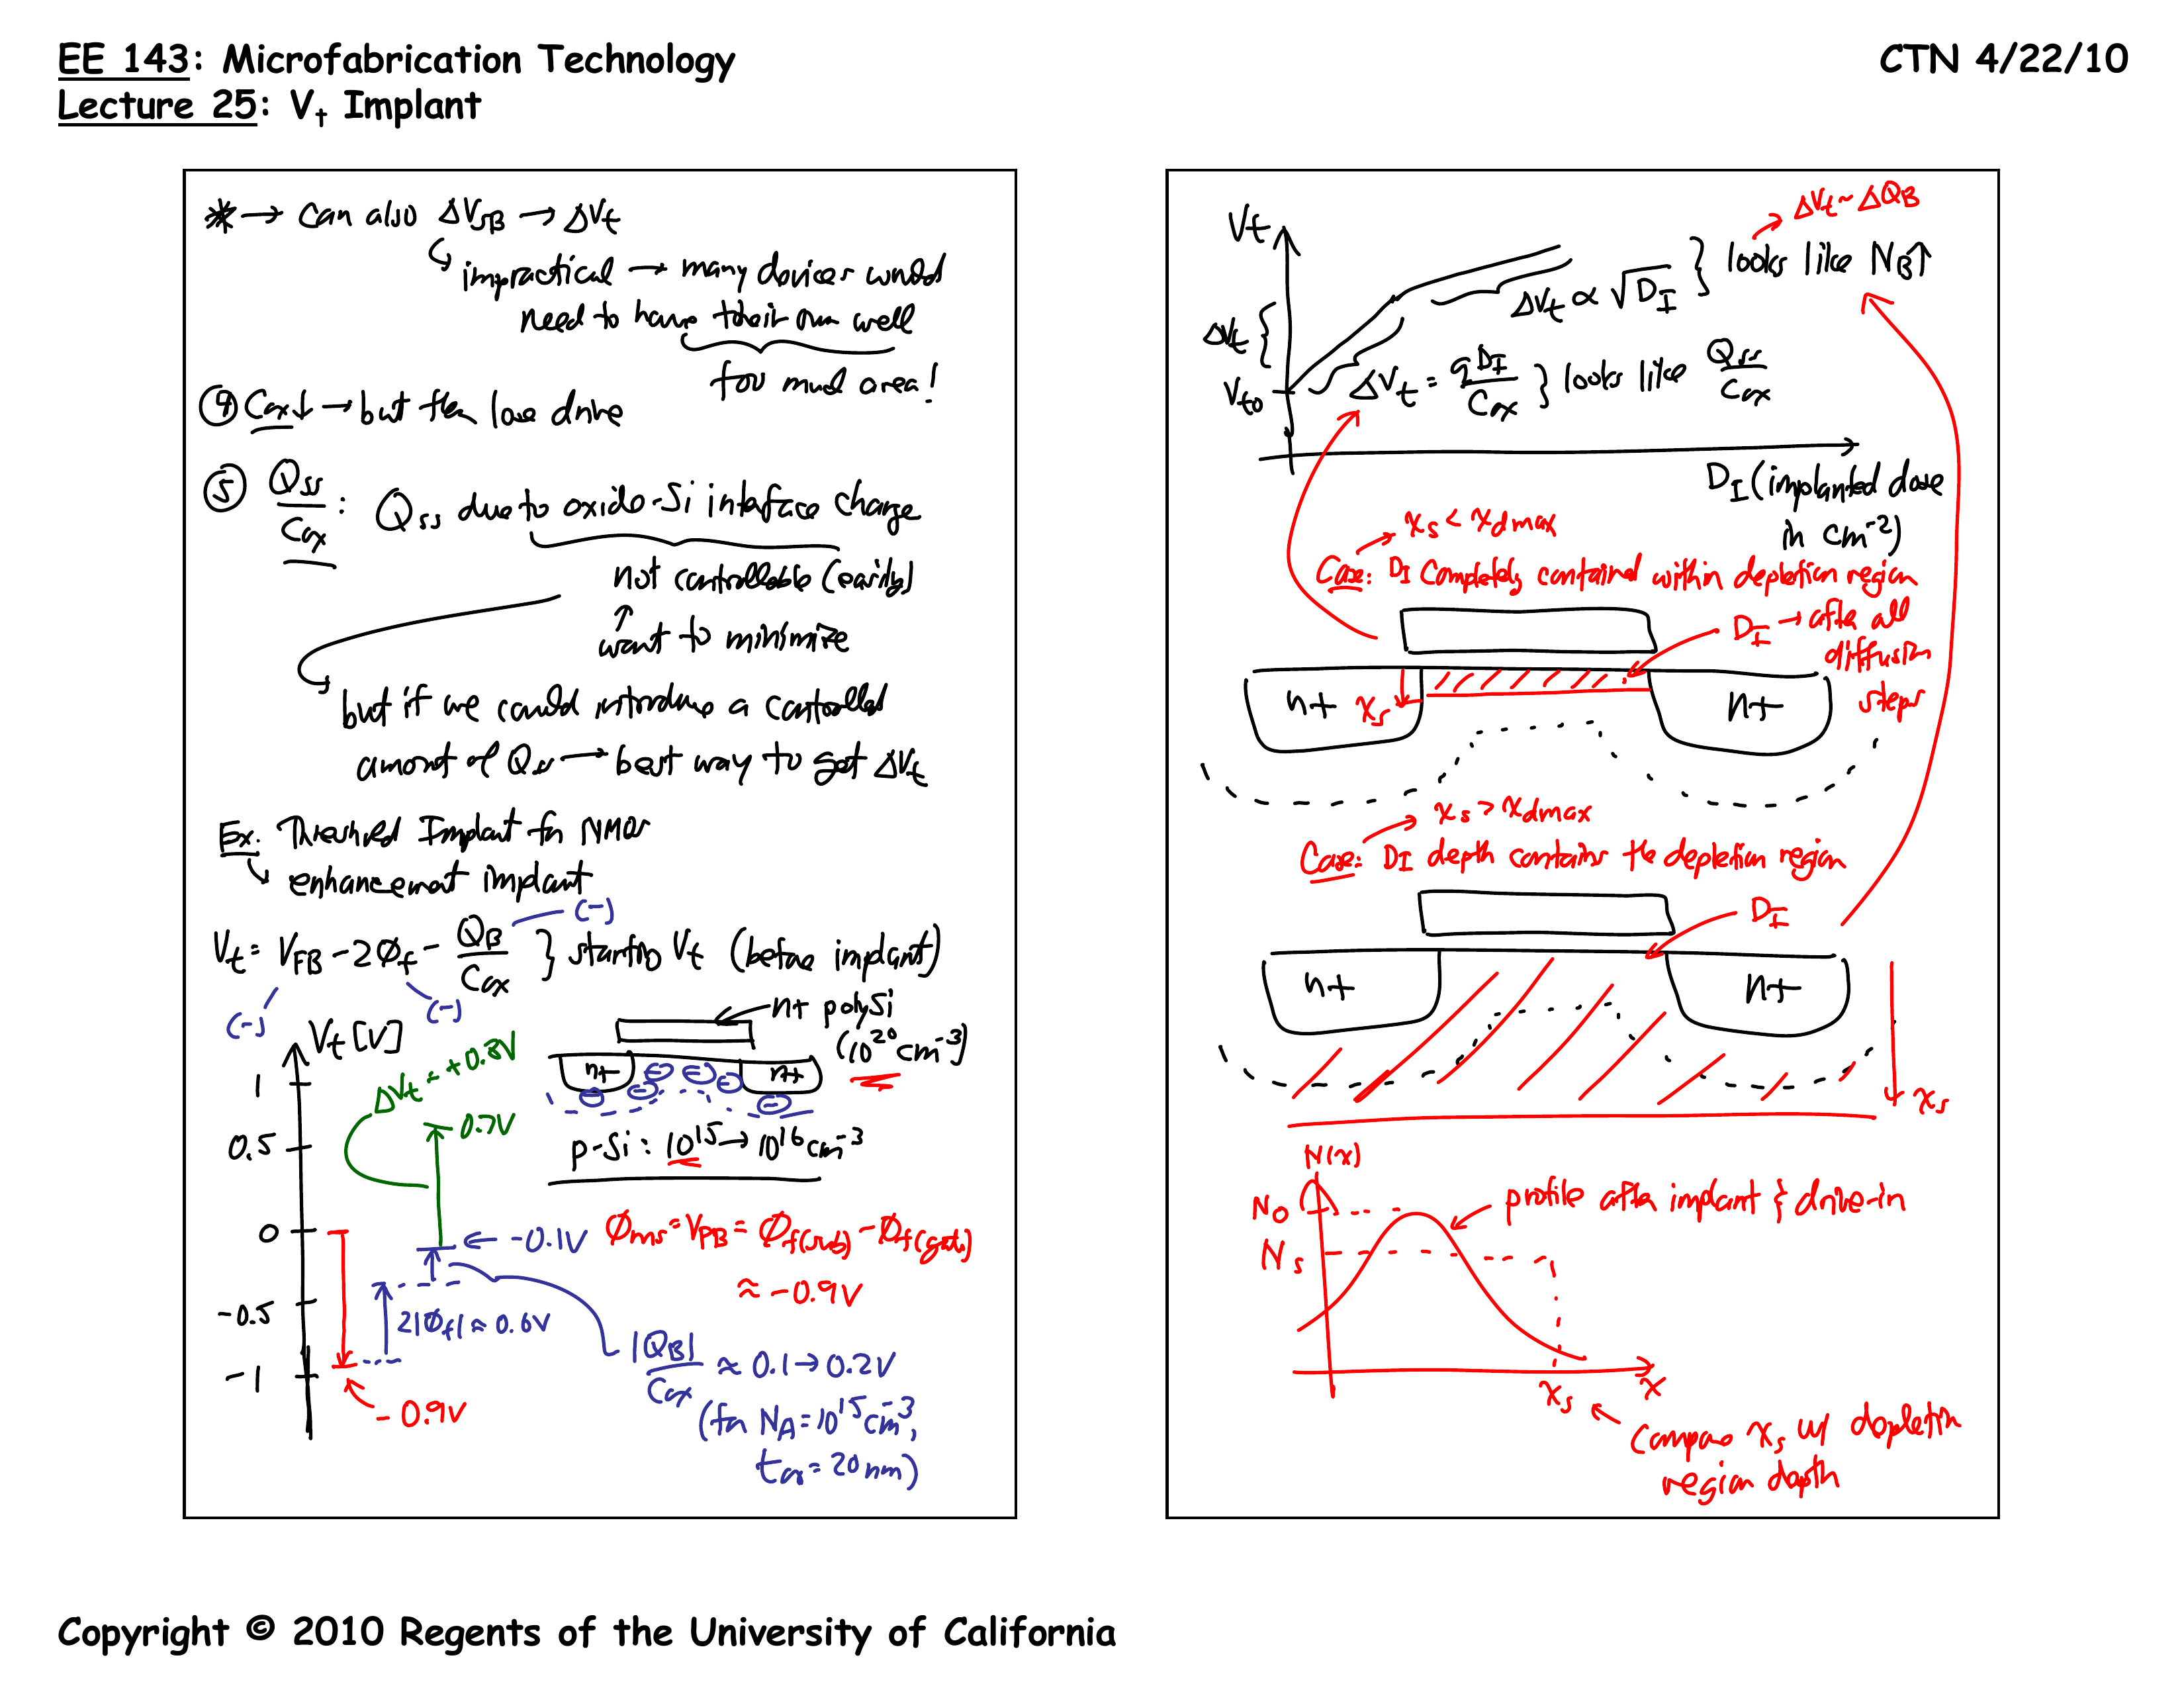 EE 143: Microfabrication Technology
CTN 4/22/10
Lecture 25: Vt Implant
* → Can also ΔVSB → ΔVt
impractical → many devices would
need to have their own well
too much area!
④ Cox↓ → but then lose drive
⑤ Qss/Cox: Qss due to oxide-Si interface charge
not controllable (easily)
want to minimize
but if we could introduce a controlled
amount of Qss → best way to get ΔVt
Ex. Threshold Implant for NMOS
enhancement implant
(-)
Vt = VFB - 2Øf - QB/Cox } starting Vt (before implant)
(-)
(-)
n+ polySi
(10²⁰ cm⁻³)
Vt [V]
ΔVt = +0.8V
n+
n+
1
0.7V
0.5
p-Si: 10¹⁵ → 10¹⁶ cm⁻³
0
← -0.1V
Øms = VFB = Øf(sub) - Øf(gate)
≈ -0.9V
-0.5
2|Øf| ≈ 0.6V
|QB|/Cox ≈ 0.1 → 0.2V
-1
- 0.9V
(for NA = 10¹⁵ cm⁻³,
tox = 20nm)
ΔVt ~ ΔQB
Vt
ΔVt ∝ √DI } looks like NB↑
ΔVt
ΔVt = qDI/Cox } looks like Qss/Cox
Vto
DI (implanted dose
in cm⁻²)
xs < xdmax
Case: DI Completely contained within depletion region
DI → after all
diffusion
steps
n+
xs
n+
xs > xdmax
Case: DI depth contains the depletion region
DI
n+
n+
xs
N(x)
No
profile after implant & drive-in
Ns
xs
x
Compare xs w/ depletion
region depth
Copyright © 2010 Regents of the University of California